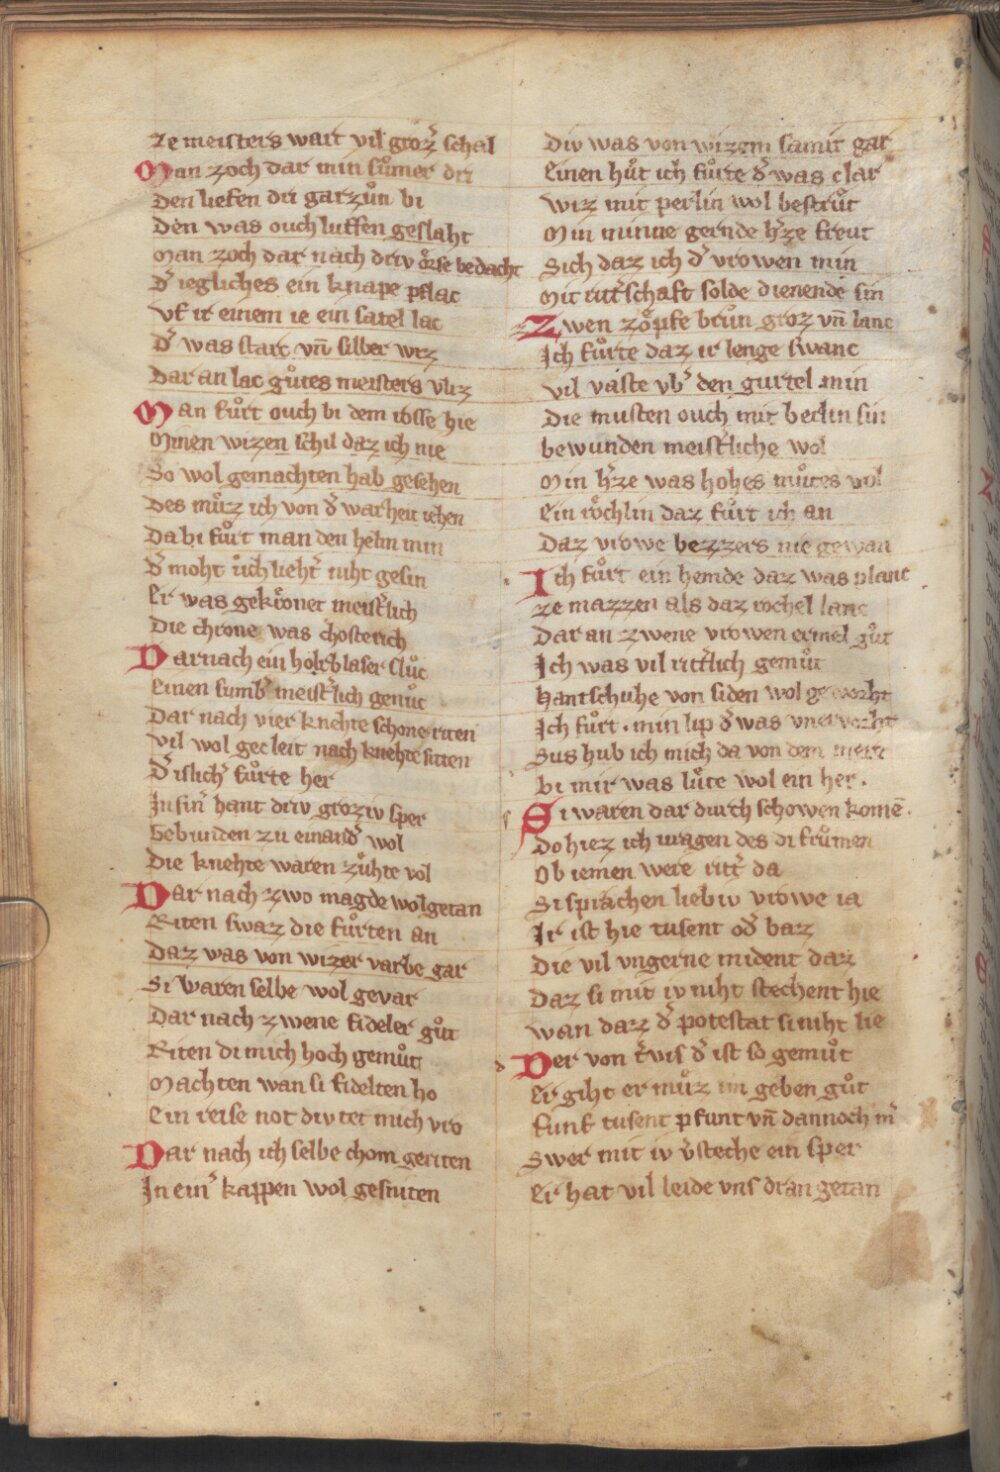 ze meisters wart vil groz̉ schal
Man zoch dar min sůmer dri
Den liefen dri garzůn bi
Den was ouch luffen geslaht
Man zoch dar nach driv ôrse bedacht
Dˀ iegliches ein knape pflac
Vf ir einem ie ein satel lac
Dˀ was starc vn̄ silber wiz
Dar an lac gůtes meisters vliz
Man fůrt ouch bi dem rosse hie
Minen wizen schil daz ich nie
So wol gemachten hab gesehen
Des můz ich von dˀ warheit iehen
Da bi fůrt man den helm min
Dˀ moht lieht̉ niht gesin
Er was gekrônet meistˀlich
Die chrone was chosterich
Darnach ein holrblaser slůc
Einen sumbˀ meistˀlich genůc
Dar nach vier knehte schone riten
Vil wol gecleit nach knehte siten
Dˀ islichˀ fůrte her
In sinˀ hant driv groziv sper
Gebunden zu einandˀ wol
Die knehte waren zůhte vol
Dar nach zwo magde wolgetan
Riten swaz die fůrten an
Daz was von wizer varbe gar
Si waren selbe wol gevar
Dar nach zwene fideler gůt
Riten di mich hoch gemůt
Machten wan si fidelten ho
Ein reise not div tet mich vro
Dar nach ich selbe chom geriten
In einˀ kappen wol gesniten
Div was von wizem samit gar
Einen hůt ich fůrte dˀ was clar
Wiz mit perlin wol bestrůt
Min minne gernde hˀze freut
Sich daz ich dˀ vrowen min
Mit rittˀschaft solde dienende sin
Zwen zôpfe brůn groz vn̄ lanc
Ich fůrte daz ir lenge swanc
Vil vaste vbˀ den gurtel min
Die musten ouch mit berlin sin
bewunden meistˀliche wol
Min hˀze was hohes můtes vol
Ein rôchlin daz fůrt ich an
Daz vrowe bezzers nie gewan
Ich fůrt ein hemde daz was planc
ze mazzen als daz rochel lanc
Dar an zwene vrowen ermel gůt
Ich was vil rittˀlich gemůt
Hantschuhe von siden wol geworht
Ich fůrt . min lip dˀ was vnervorht
Sus hub ich mich da von dem merr
bi mir was lůte wol ein her .
Si waren dar durch schowen komē .
Do hiez ich vragen des di frůmen
Ob iemen were rittˀ da
Si sprachen liebiv vrowe ia
Ir ist hie tusent odˀ baz
Die vil vngerne mident daz
Daz si mit iv niht stechent hie
wan daz dˀ potestat si niht lie
Der von tˀvis dˀ ist so gemůt
Er giht er můz im geben gůt
funf tusent pfunt vn̄ dannoch mˀ
Swer mit iv vˀsteche ein sper
Er hat vil leide vns dran getan